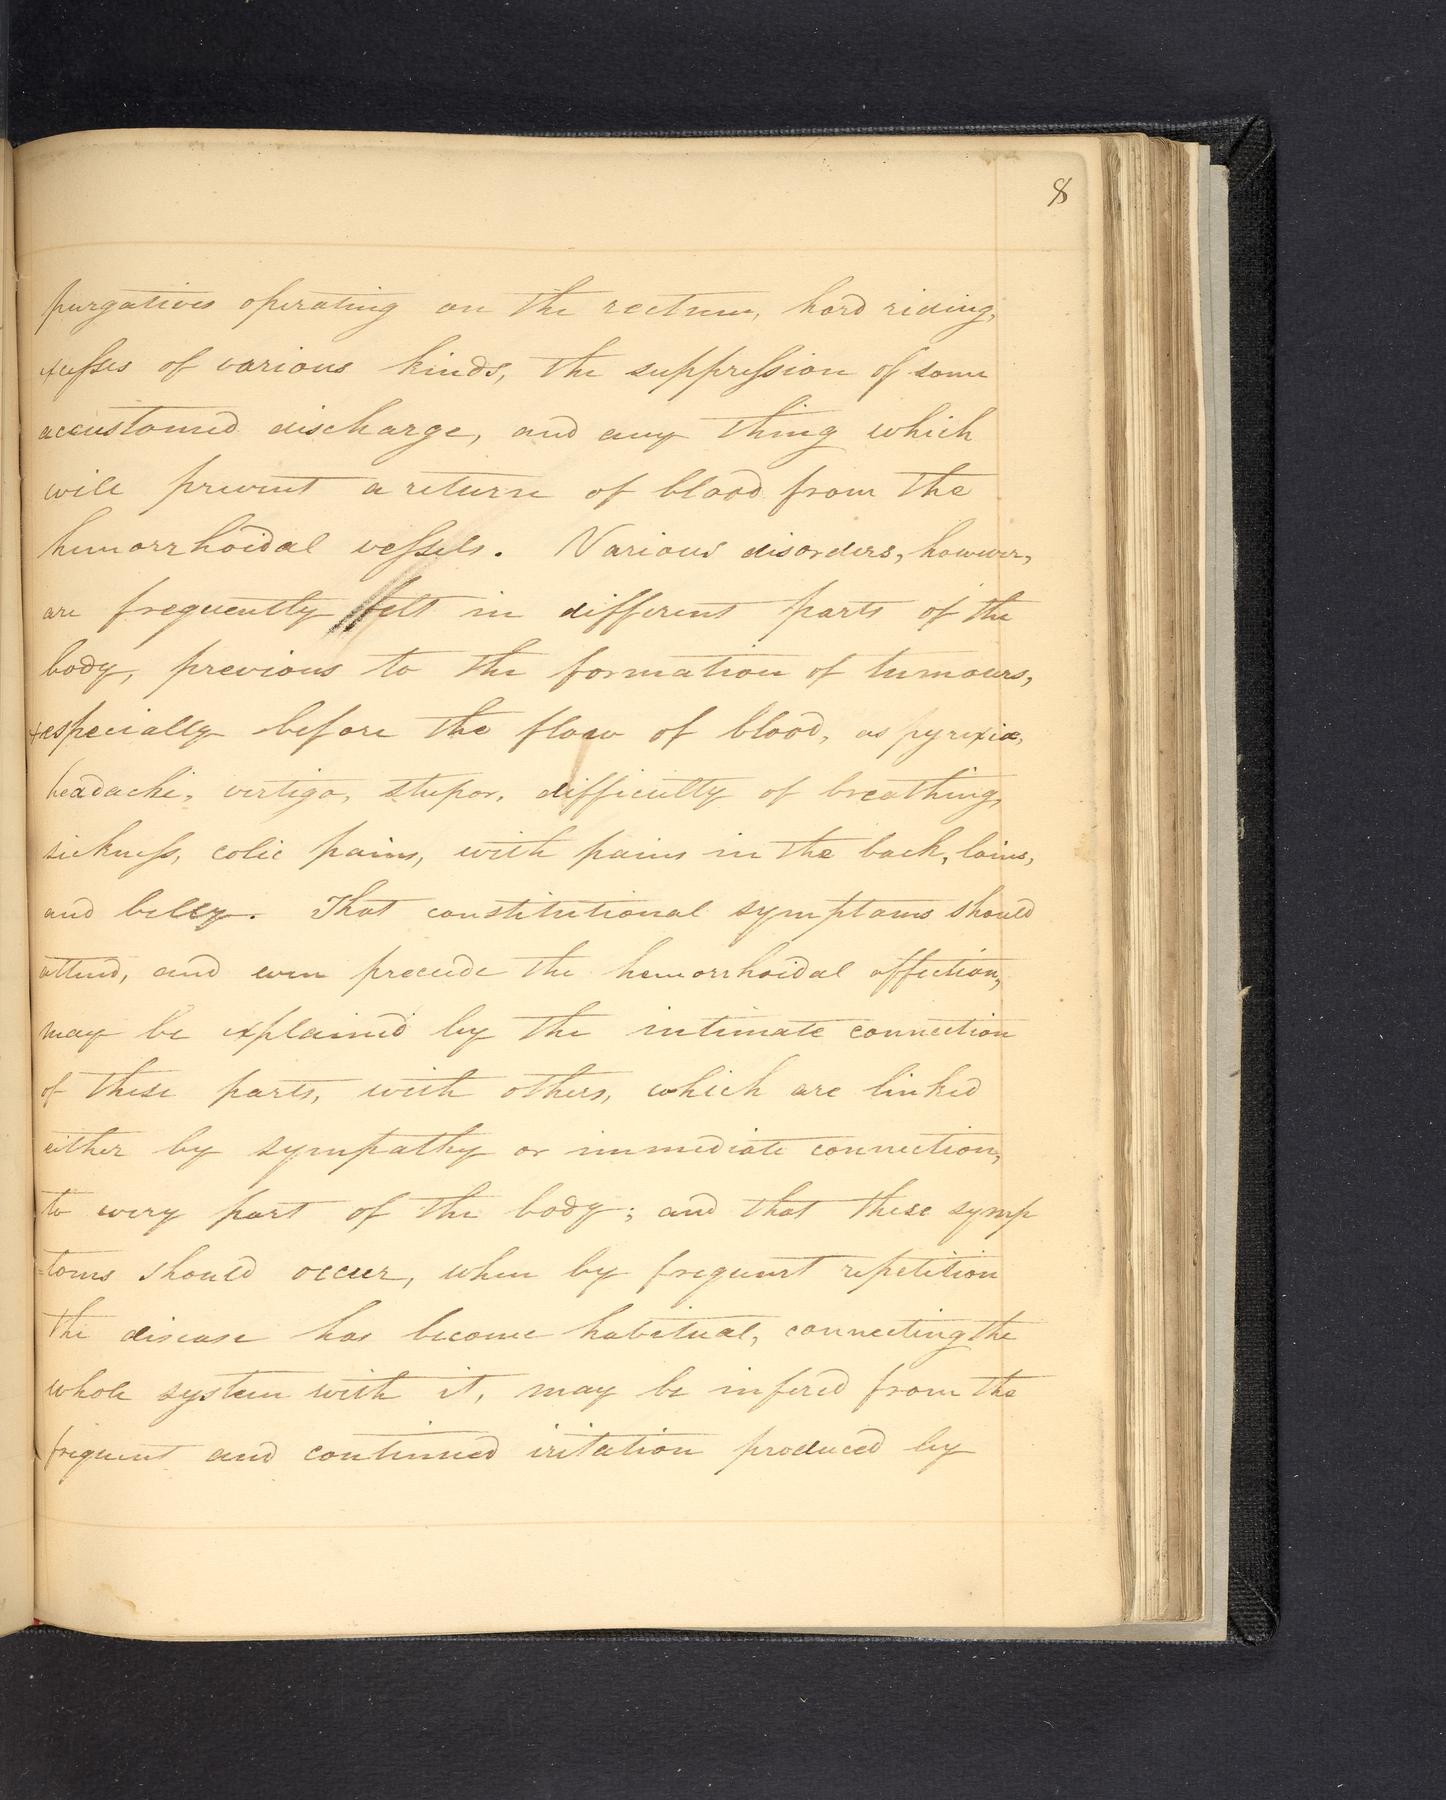 8
purgatives operating on the rectum, hard riding,
exesses of various kinds, the suppression of some
accustomed discharge, and any thing which
will prevent a return of blood from the
hemorrhoidal vessels. Various disorders, however,
are frequently felt in different parts of the
body, previous to the formation of tumours,
+especially before the flow of blood, as pyrexia,
headache, vertigo, stupor, difficulty of breathing,
sickness, colic pains, with pains in the back, loins,
and belly. That constitutional symptoms should
attend, and even precede the hemorrhoidal affection,
may be explained by the intimate connection
of these parts, with others, which are linked
either by sympathy or immediate connection,
to every part of the body; and that these symp
=toms should occur, when by frequent repetition
the disease has become habitual, connecting the
whole system with it, may be infered from the
frequent and continued iritation produced by